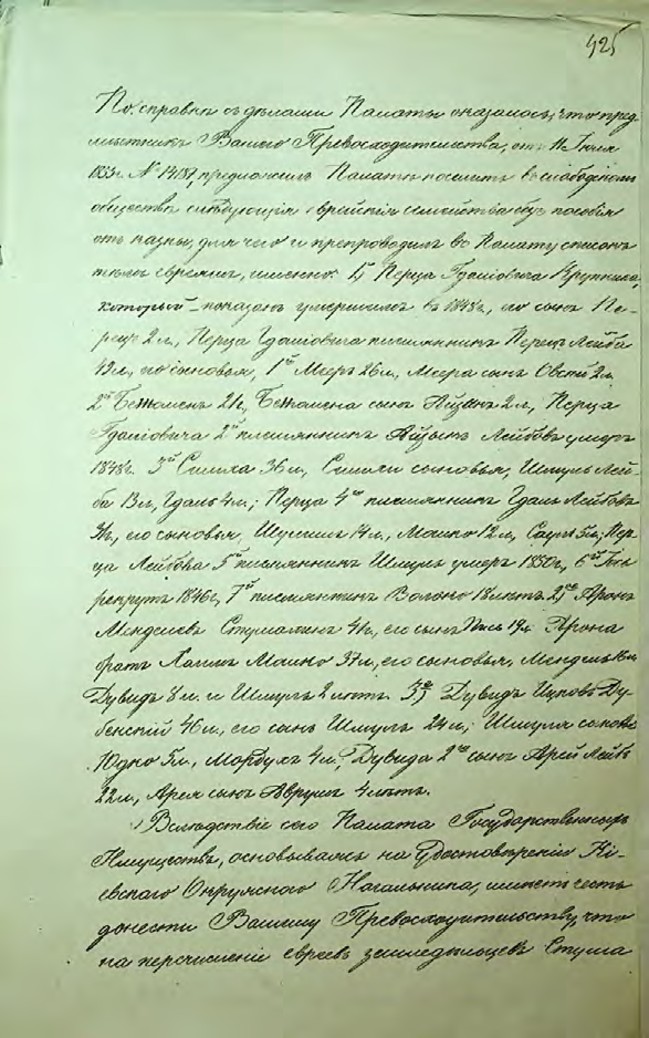 425
По справкѣ съ дѣлами Палаты оказалось, что пред-
мѣстникъ Вашего Превосходительства, отъ 11 Іюля
1853 г. № 14187, предложилъ Палатѣ поселить въ слободскомъ
обществѣ слѣдующія еврейскія семейства безъ пособія
отъ казны, для чего и препроводилъ въ Палату списокъ
тѣмъ евреямъ, именно: 1) Перца Гдаліовича Крупника,
который показанъ умершимъ въ 1848 г., его сынъ Пе-
рецъ 2 л., Перца Гдаліовича племянникъ Перецъ Лейба
49 л., его сыновья, 1й Мееръ 26 л., Меера сынъ Овсій 2 л.
2й 21 л., сынъ Айзикъ 2 л., Перца
Гдаліовича 2й племянникъ Айзикъ Лейбовъ умеръ
1848 г. 3й Симха 36 л., Симхи сыновья, Шмуль Лей-
ба 13 л., Гдаль 4 л.; Перца 4й племянникъ Гдаль Лейбовъ
его сыновья, 14 л., Мошко 12 л., 5 л.; Пер-
ца Лейбова 5й племянникъ Шмуль умеръ 1850 г., 6й
рекрутъ 1846 г., 7й племянникъ Волько 18 лѣтъ 2) Аронъ
Менделевъ 41 л., его сынъ 19 л. Арона
братъ Хаимъ Мошко 37 л., его сыновья, Мендель 16 л.
Дувидъ 8 л. и Шмуль 2 лѣтъ. 3) Дувидъ Ицковъ Ду-
бенскій 46 л., его сынъ Шмуль 24 л.; Шмуля сыновья
Юдко 5 л., Мордухъ 4 л.; Дувида 2й сынъ Арей Лейбъ
22 л., Арея сынъ Аврумъ 4 лѣтъ.
Вслѣдствіе сего Палата Государственныхъ
Имуществъ, основываясь на удостовѣреніи Кі-
евскаго Окружнаго Начальника, имѣетъ честь
донести Вашему Превосходительству, что
на перечисленіе евреевъ земледѣльцевъ Стума